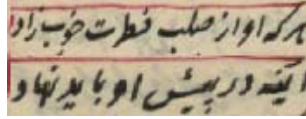 هر که او از صلب فطرت خوب زاد
آینه در پیش او باید نهاد